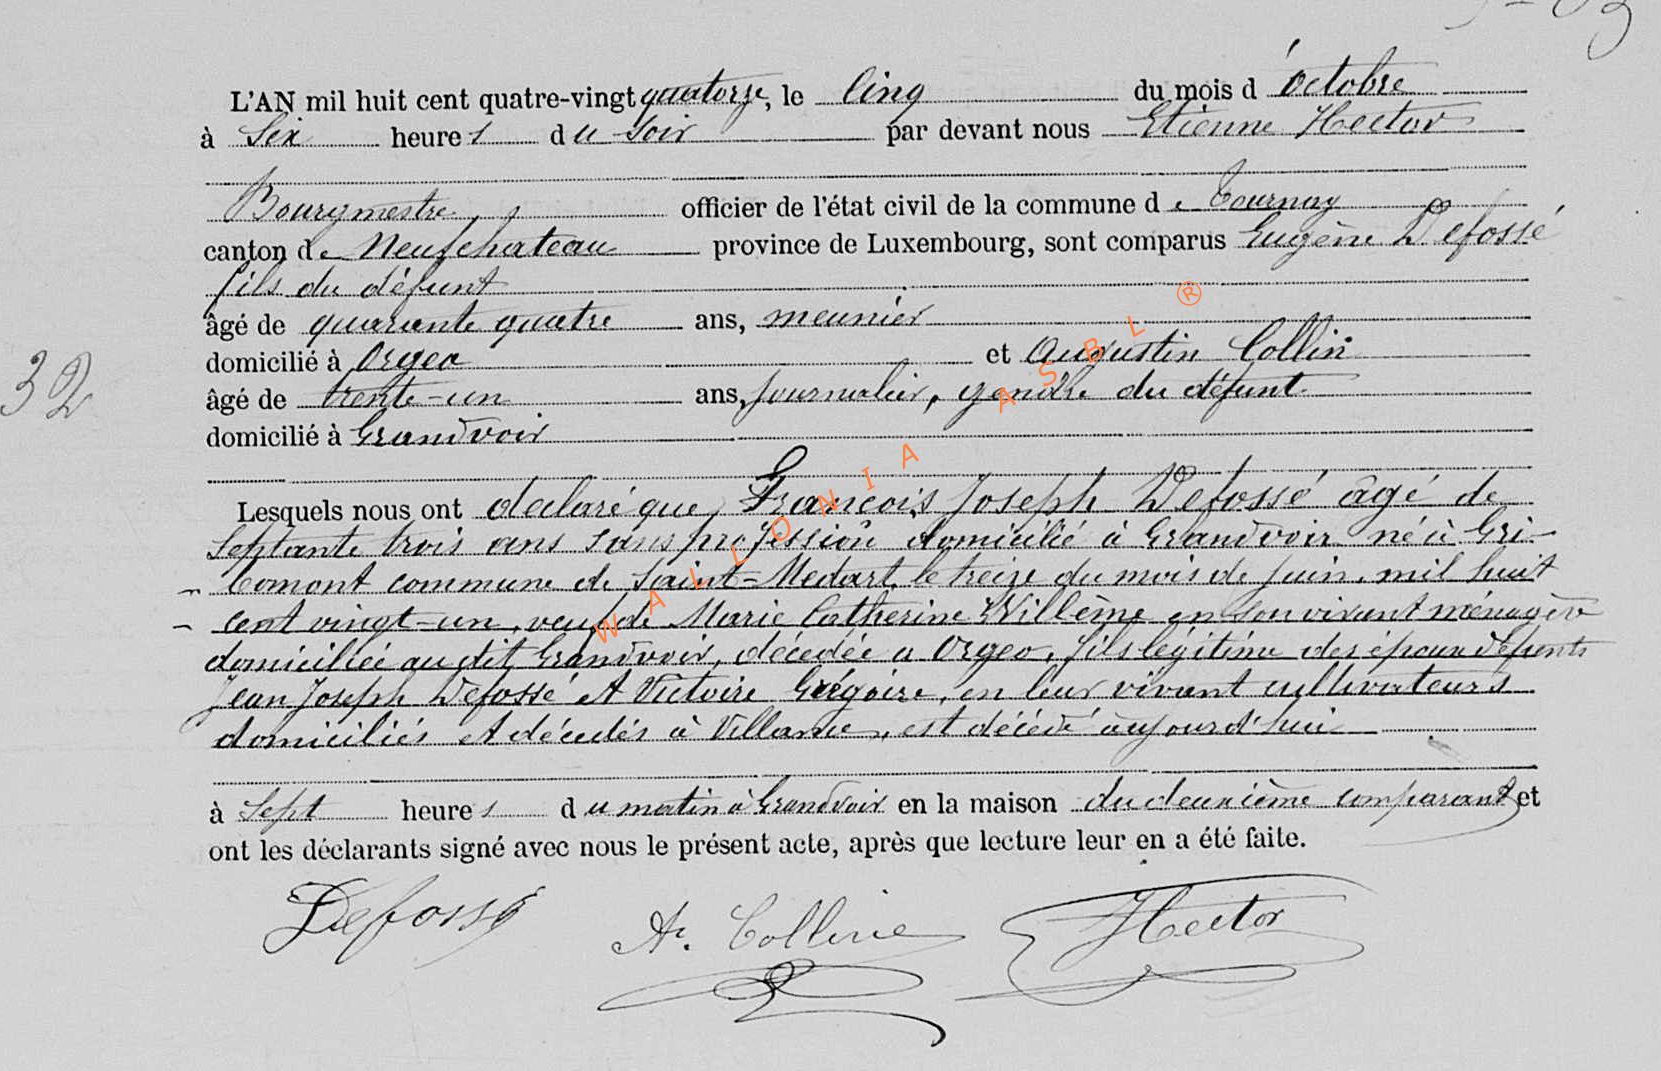 L'AN mil huit cent quatre-vingt quatorze, le Cinq du mois d'octobre
à Six heures du soir par devant nous Etienne Hector
Bourgmestre, officier de l'état civil de la commune de Tournay
canton de Neufchateau province de Luxembourg, sont comparus Eugène Defossé
fils du défunt
âgé de quarante quatre ans, meunier
domicilié à Orgeo et Augustin Collin
âgé de trente-un ans, journalier, gendre du défunt
domicilié à Grandvoir
32
Lesquels nous ont declaré que François Joseph Defossé âgé de
septante trois ans sans profession domicilié à Grandvoir né à Gri-
comont commune de Saint-Medart le treize du mois de juin mil huit
cent vingt-un, veuf de Marie Catherine Willème en son vivant ménagère
domiciliée au dit Grandvoir, décédée à Orgeo, fils légitime des époux défunts
Jean Joseph Defossé et Victoire Grégoire, en leur vivant cultivateurs
domiciliés et décédés à Villance, est décédé aujourd'hui
à Sept heures du matin à Grandvoir en la maison du deuxième comparant et
ont les déclarants signé avec nous le présent acte, après que lecture leur en a été faite.
Defossé A. Collin Hector
WALLONIA ASBL ®